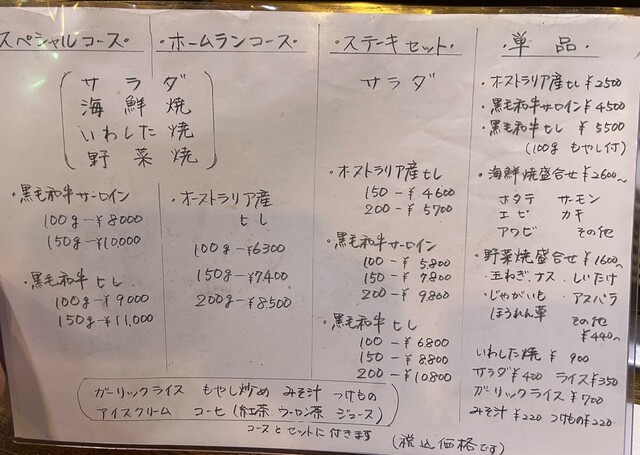 スペシャルコース
・ホームランコース
サラダ
海鮮焼
いわした焼
野菜焼
・黒毛和牛サーロイン
100g-¥8000
150g-¥10000
・黒毛和牛ヒレ
100g-¥9000
150g-¥11,000
・オーストラリア産
ヒレ
100g-¥6300
150g-¥7400
200g-¥8,500
・ステーキセット・
サラダ
・オーストラリア産ヒレ
150-¥4600
200-¥5700
・黒毛和牛サーロイン
100-¥5,800
150-¥7,800
200-¥9800
・黒毛和牛ヒレ
100-¥6800
150-¥8,800
200-¥10800
・単品・
・オーストラリア産ヒレ¥2500
・黒毛和牛サーロイン¥4500
・黒毛和牛ヒレ ¥5500
(100g もやし付)
・海鮮焼盛合せ¥2600〜
ホタテ サーモン
エビ カキ
アワビ その他
・野菜焼盛合せ¥1600〜
・玉ねぎ、ナス・しいたけ
・じゃがいも アスパラ
ほうれん草 その他
¥440〜
いわした焼 ¥900
サラダ¥400 ライス¥350
ガーリックライス ¥700
みそ汁¥220 つけもの¥220
ガーリックライス もやし炒め みそ汁 つけもの
アイスクリーム コーヒ(紅茶 ウーロン茶 ジュース)
コースとセットに付きます
(税込価格です)